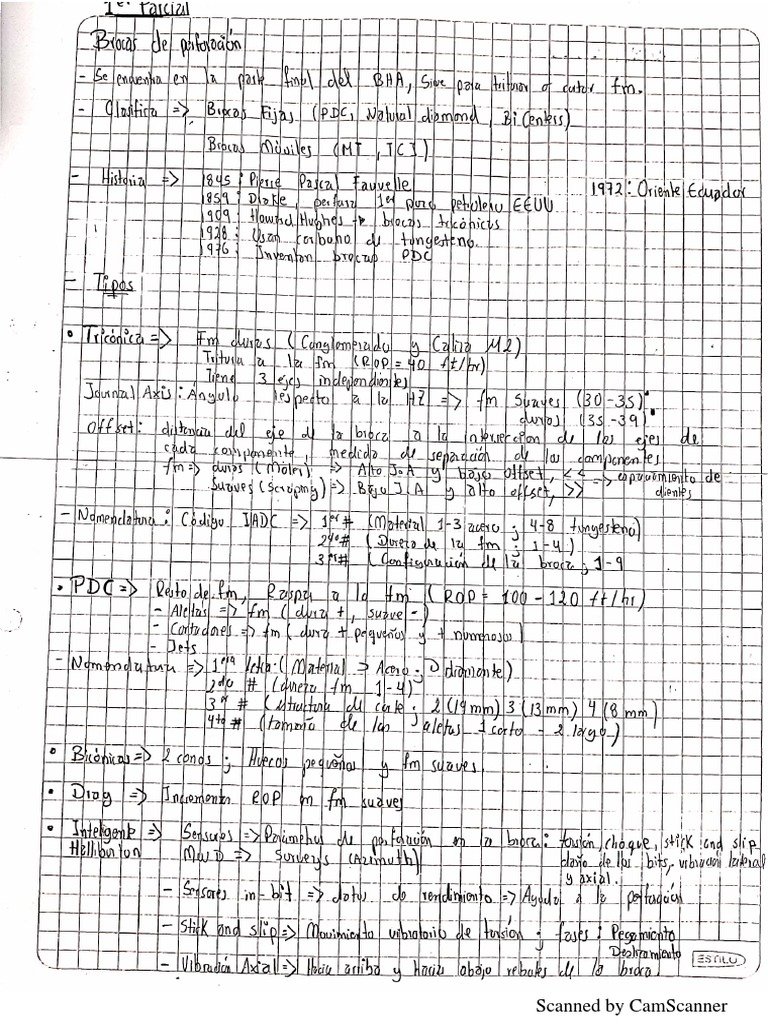 1er Parcial
Brocas de perforación
- Se encuentra en la parte final del BHA, Sirve para triturar o cortar fm.
- Clasifica => Brocas Fijas (PDC, Natural diamond, BiCenters)
Brocas Móviles (MT, TCI)
- Historia => 1845: Pierre Pascal Fauvelle
1972: Oriente Ecuador
1859: Drake, perfora 1er pozo petrolero EEUU
1909: Howard Hughes → brocas tricónicas
1928: Usan carburo de tungesteno.
1976: Inventan brocas PDC
- Tipos
• Tricónica => Fm duras (Conglomerado y Caliza M2)
Tritura a la fm (ROP = 40 ft/hr)
Tiene 3 ejes independientes
Journal Axis: Ángulo respecto a la HZ => fm suaves (30-35)°
duros (35-39)°
Offset: distancia del eje de la broca a la intersección de los ejes de
cada componente, medida de separación de los componentes
fm => duros (Moler) => Alto J.A y bajo offset, << => espaciamiento de
Suaves (Scraping) => Bajo J.A y alto offset, >> dientes
- Nomenclatura: Código IADC => 1er # (Material 1-3 acero; 4-8 tungesteno)
2do # (Dureza de la fm; 1-4)
3er # (Configuración de la broca; 1-9
• PDC => Resto de fm, Raspa a la fm (ROP = 100 - 120 ft/hr)
- Aletas => fm (dura +, suave -)
- Cortadores => fm (dura + pequeños y + numerosos)
- Jets
- Nomenclatura => 1era letra: (Material > Acero; D diamante)
2do # (dureza fm 1-4)
3er # (estructura de corte; 2 (19mm) 3 (13mm) 4 (8mm)
4to # (tamaño de las aletas 1 corto - 2 largo)
• Bicónicas => 2 conos; Huecos pequeños y fm suaves
• Drag => Incrementa ROP en fm suaves
• Inteligente => Sensores => Parámetros de perforación en la broca: torsión, choque, stick and slip
Halliburton MWD => Surveys (Azimuth) daño de los bits, vibración lateral
y axial.
- Sensores in-bit => datos de rendimiento => Ayuda a la perforación
- Stick and slip => Movimiento vibratorio de torsión; fases: Pegamiento
Deslizamiento
- Vibración Axial => Hacia arriba y hacia abajo rebotes de la broca
ESTILO
Scanned by CamScanner